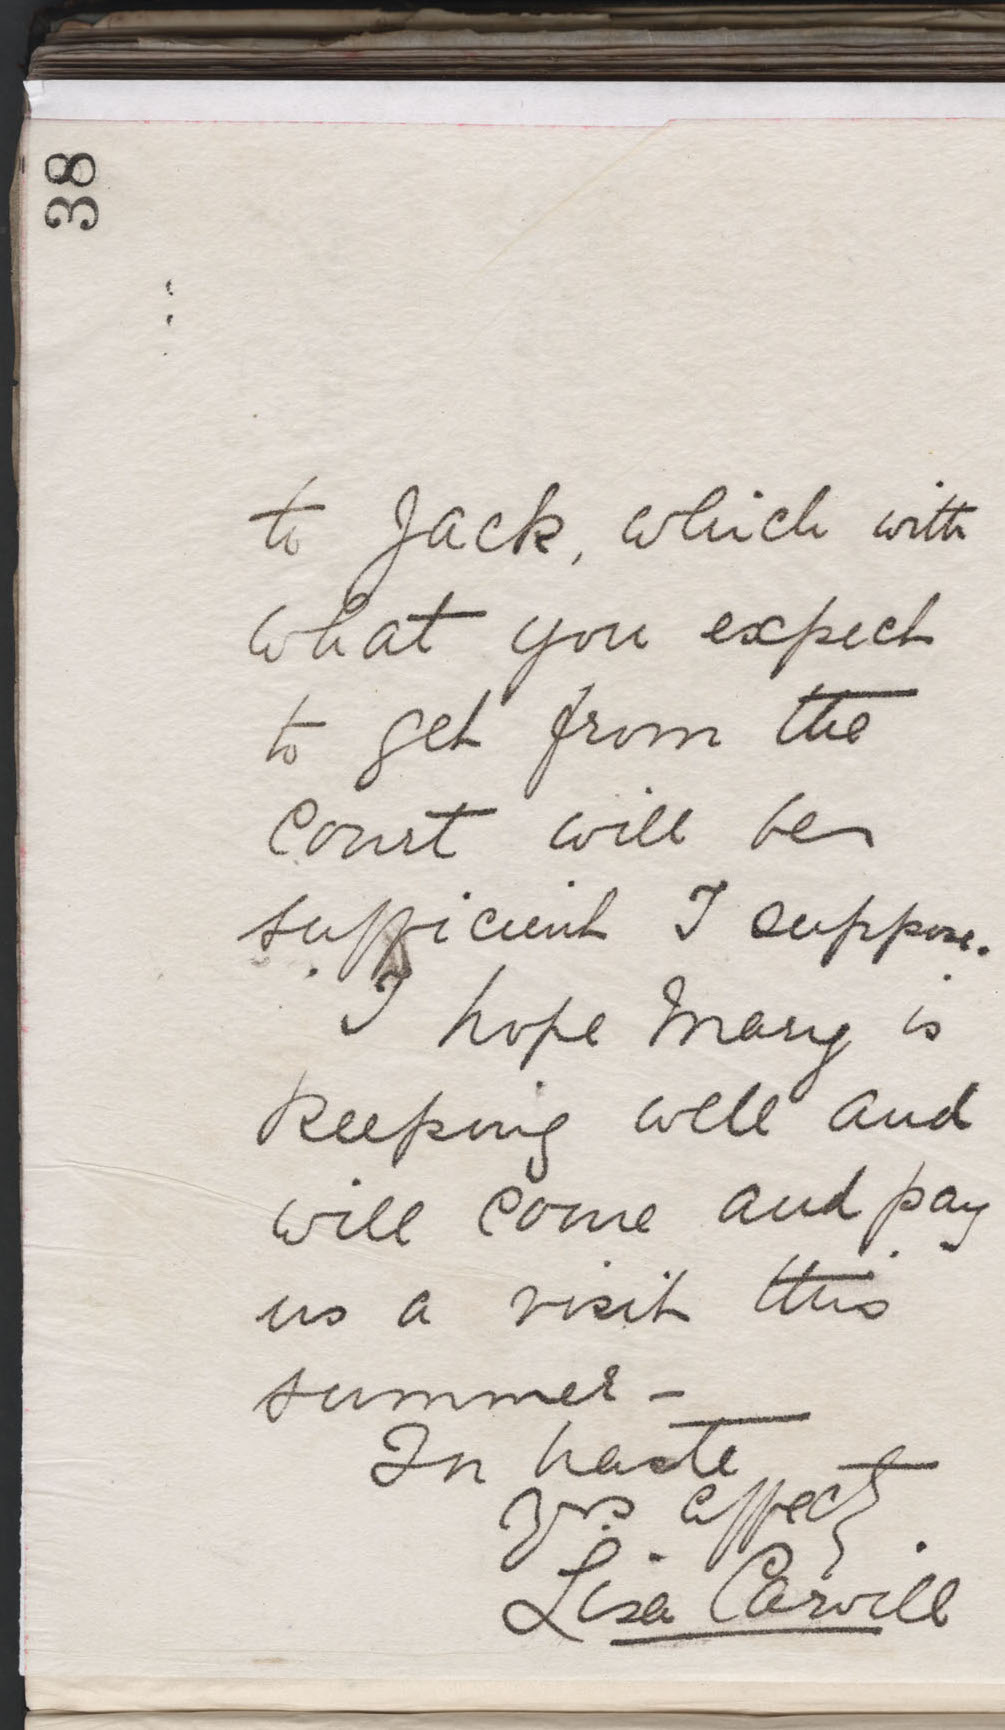 38
to Jack, which with
what you expect
to get from the
Court will be
sufficient I suppose.
I hope Mary is
keeping well and
will come and pay
us a visit this
summer –
In haste
Yrs affectly
Lisa Carvill